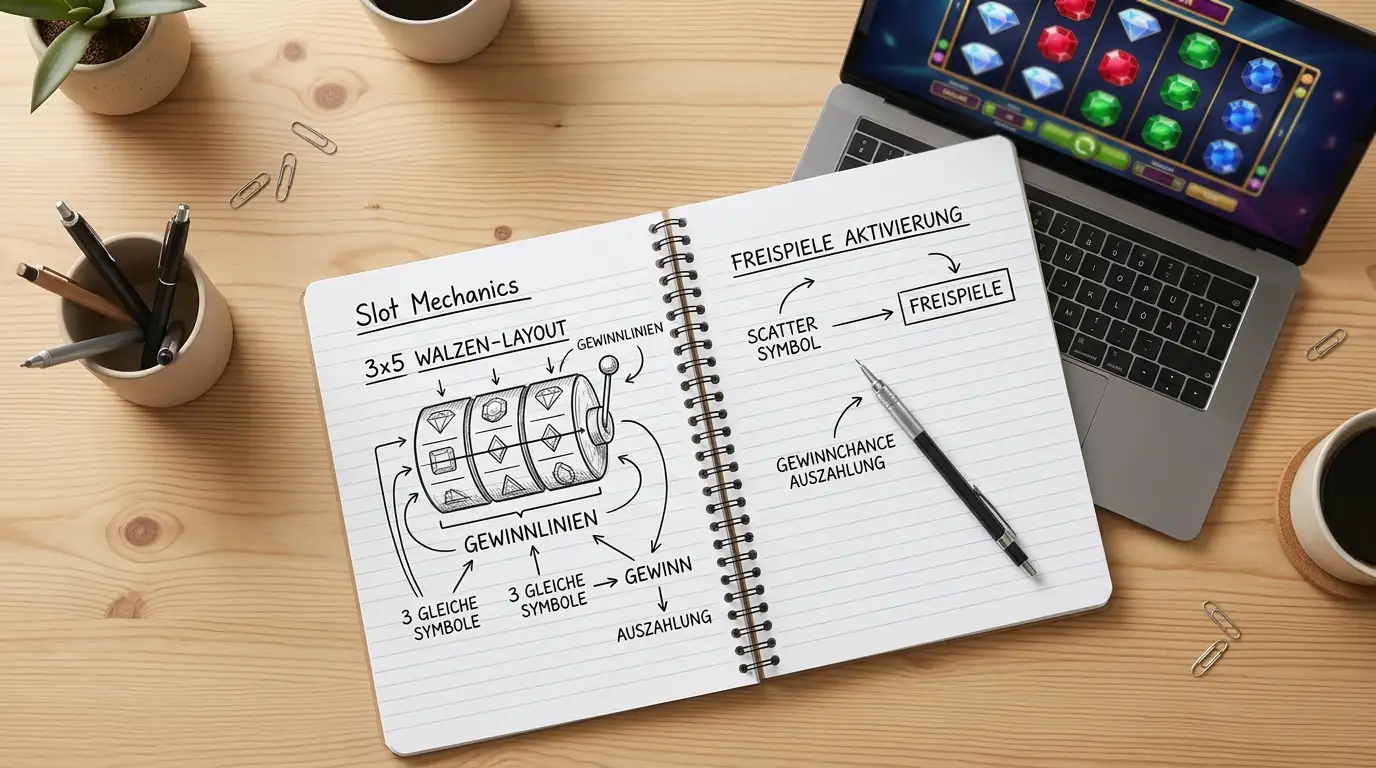 Slot Mechanics
3x5 WALZEN-LAYOUT
GEWINNLINIEN
GEWINNLINIEN
3 GLEICHE
SYMBOLE
3 GLEICHE
SYMBOLE
GEWINN
AUSZAHLUNG
FREISPIELE AKTIVIERUNG
SCATTER
SYMBOL
FREISPIELE
GEWINNCHANCE
AUSZAHLUNG